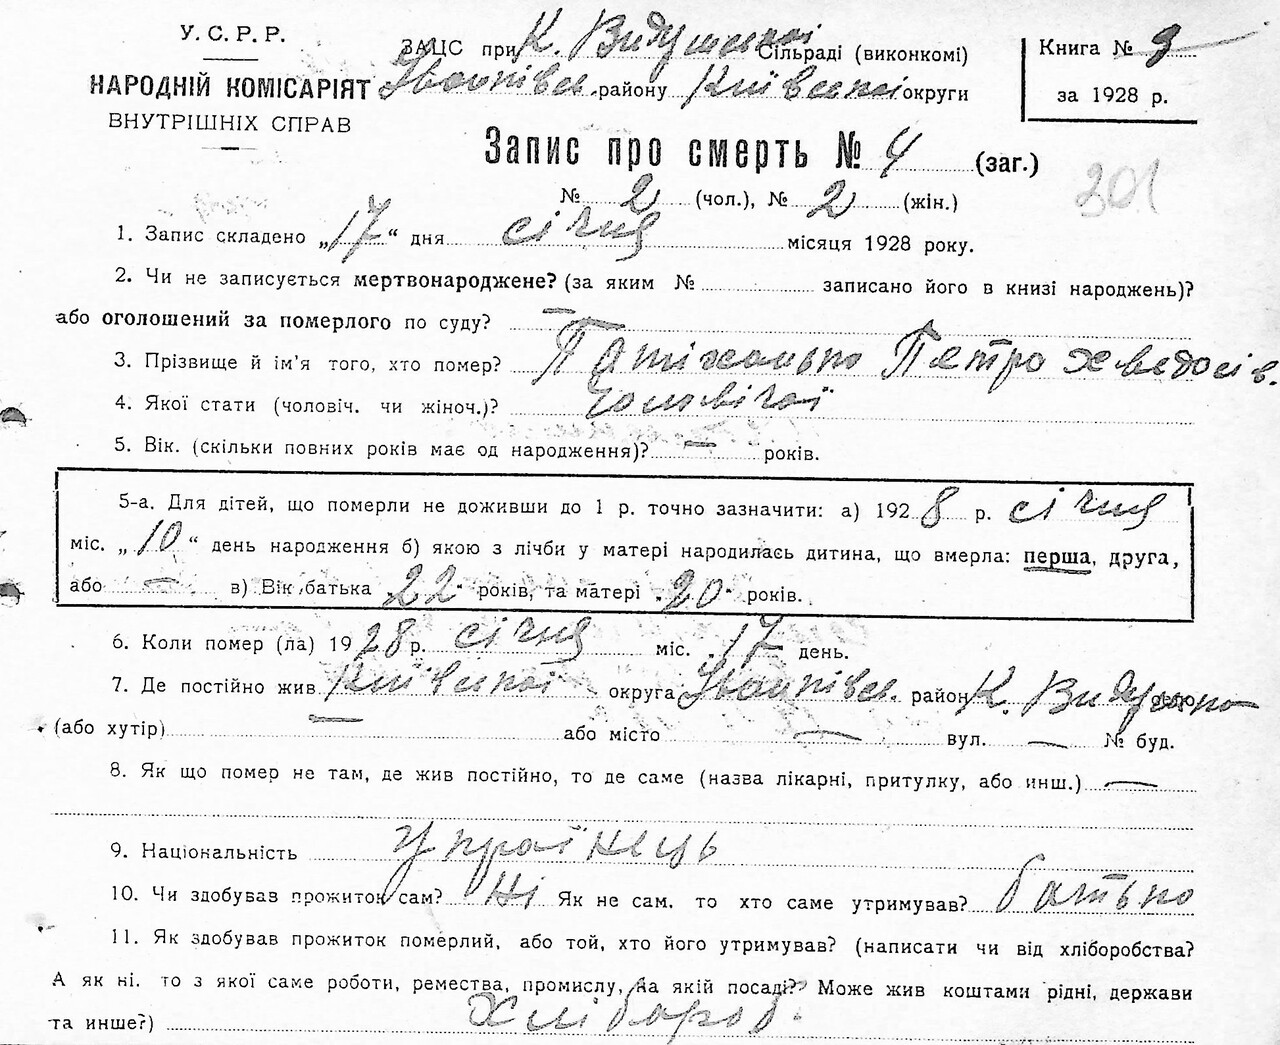 У. С. Р. Р.
НАРОДНІЙ КОМІСАРІЯТ
ВНУТРІШНІХ СПРАВ
ЗАЦС при К. Сільраді (виконкомі)
району Київської округи
Книга № 9
за 1928 р.
Запис про смерть № 4 (заг.)
№ 2 (чол.), № 2 (жін.)
301
1. Запис складено „17“ дня січня місяця 1928 року.
2. Чи не записується мертвонароджене? (за яким № записано його в книзі народжень)?
або оголошений за померлого по суду? —
3. Прізвище й ім'я того, хто помер? Петро Хведосів.
4. Якої стати (чоловіч. чи жіноч.)? Чоловічої
5. Вік. (скільки повних років має од народження)? — років.
5-а. Для дітей, що померли не доживши до 1 р. точно зазначити: а) 1928 р. січня
міс. „10“ день народження б) якою з лічби у матері народилаєь дитина, що вмерла: перша, друга,
або — в) Вік батька 22 років, та матері 20 років.
6. Коли помер (ла) 1928 р. січня міс. 17 день.
7. Де постійно жив Київської округа район К.
(або хутір) — або місто — вул. — № буд.
8. Як що помер не там, де жив постійно, то де саме (назва лікарні, притулку, або инш.) —
9. Національність Українець
10. Чи здобував прожиток сам? Ні Як не сам, то хто саме утримував? батько
11. Як здобував прожиток померлий, або той, хто його утримував? (написати чи від хліборобства?
А як ні, то з якої саме роботи, ремества, промислу, на якій посаді? Може жив коштами рідні, держави
та инше?) Хлібороб.